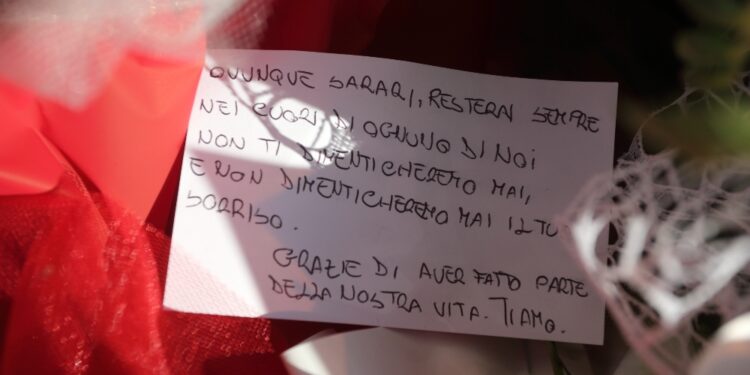 OVUNQUE SARAI, RESTERAI SEMPRE
NEI CUORI DI OGNUNO DI NOI
NON TI DIMENTICHEREMO MAI,
E NON DIMENTICHEREMO MAI IL TUO
SORRISO.
GRAZIE DI AVER FATTO PARTE
DELLA NOSTRA VITA. TIAMO.